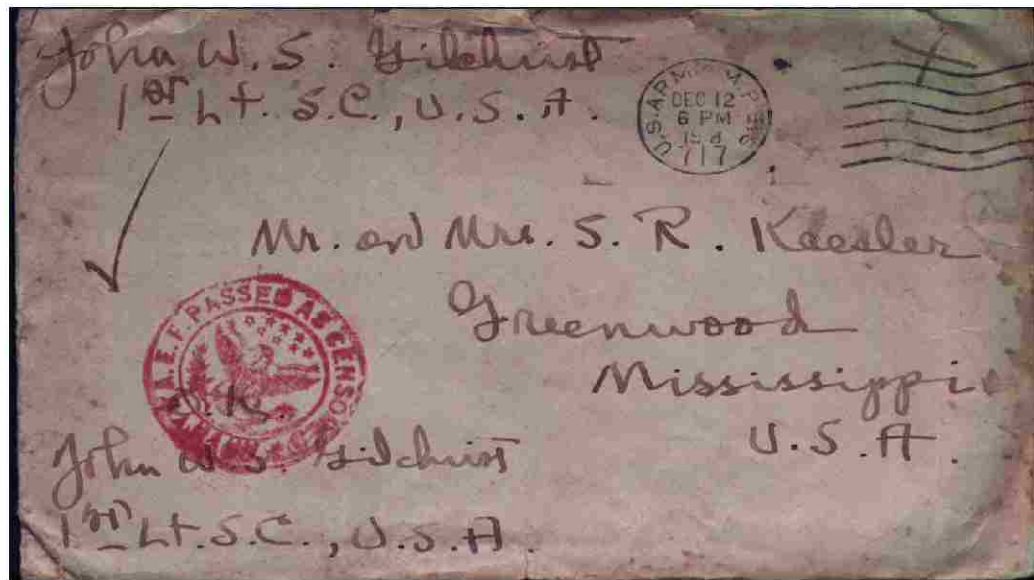 John W. S. Gilchrist
1st Lt. S.C., U.S.A.
U.S. ARMY M.P.E.S.
DEC 12
6 PM
717
Mr. and Mrs. S. R. Keesler
Greenwood
Mississippi
U.S.A.
A.E.F. PASSED AS CENSORED
O.K.
John W. S. Gilchrist
1st Lt. S.C., U.S.A.